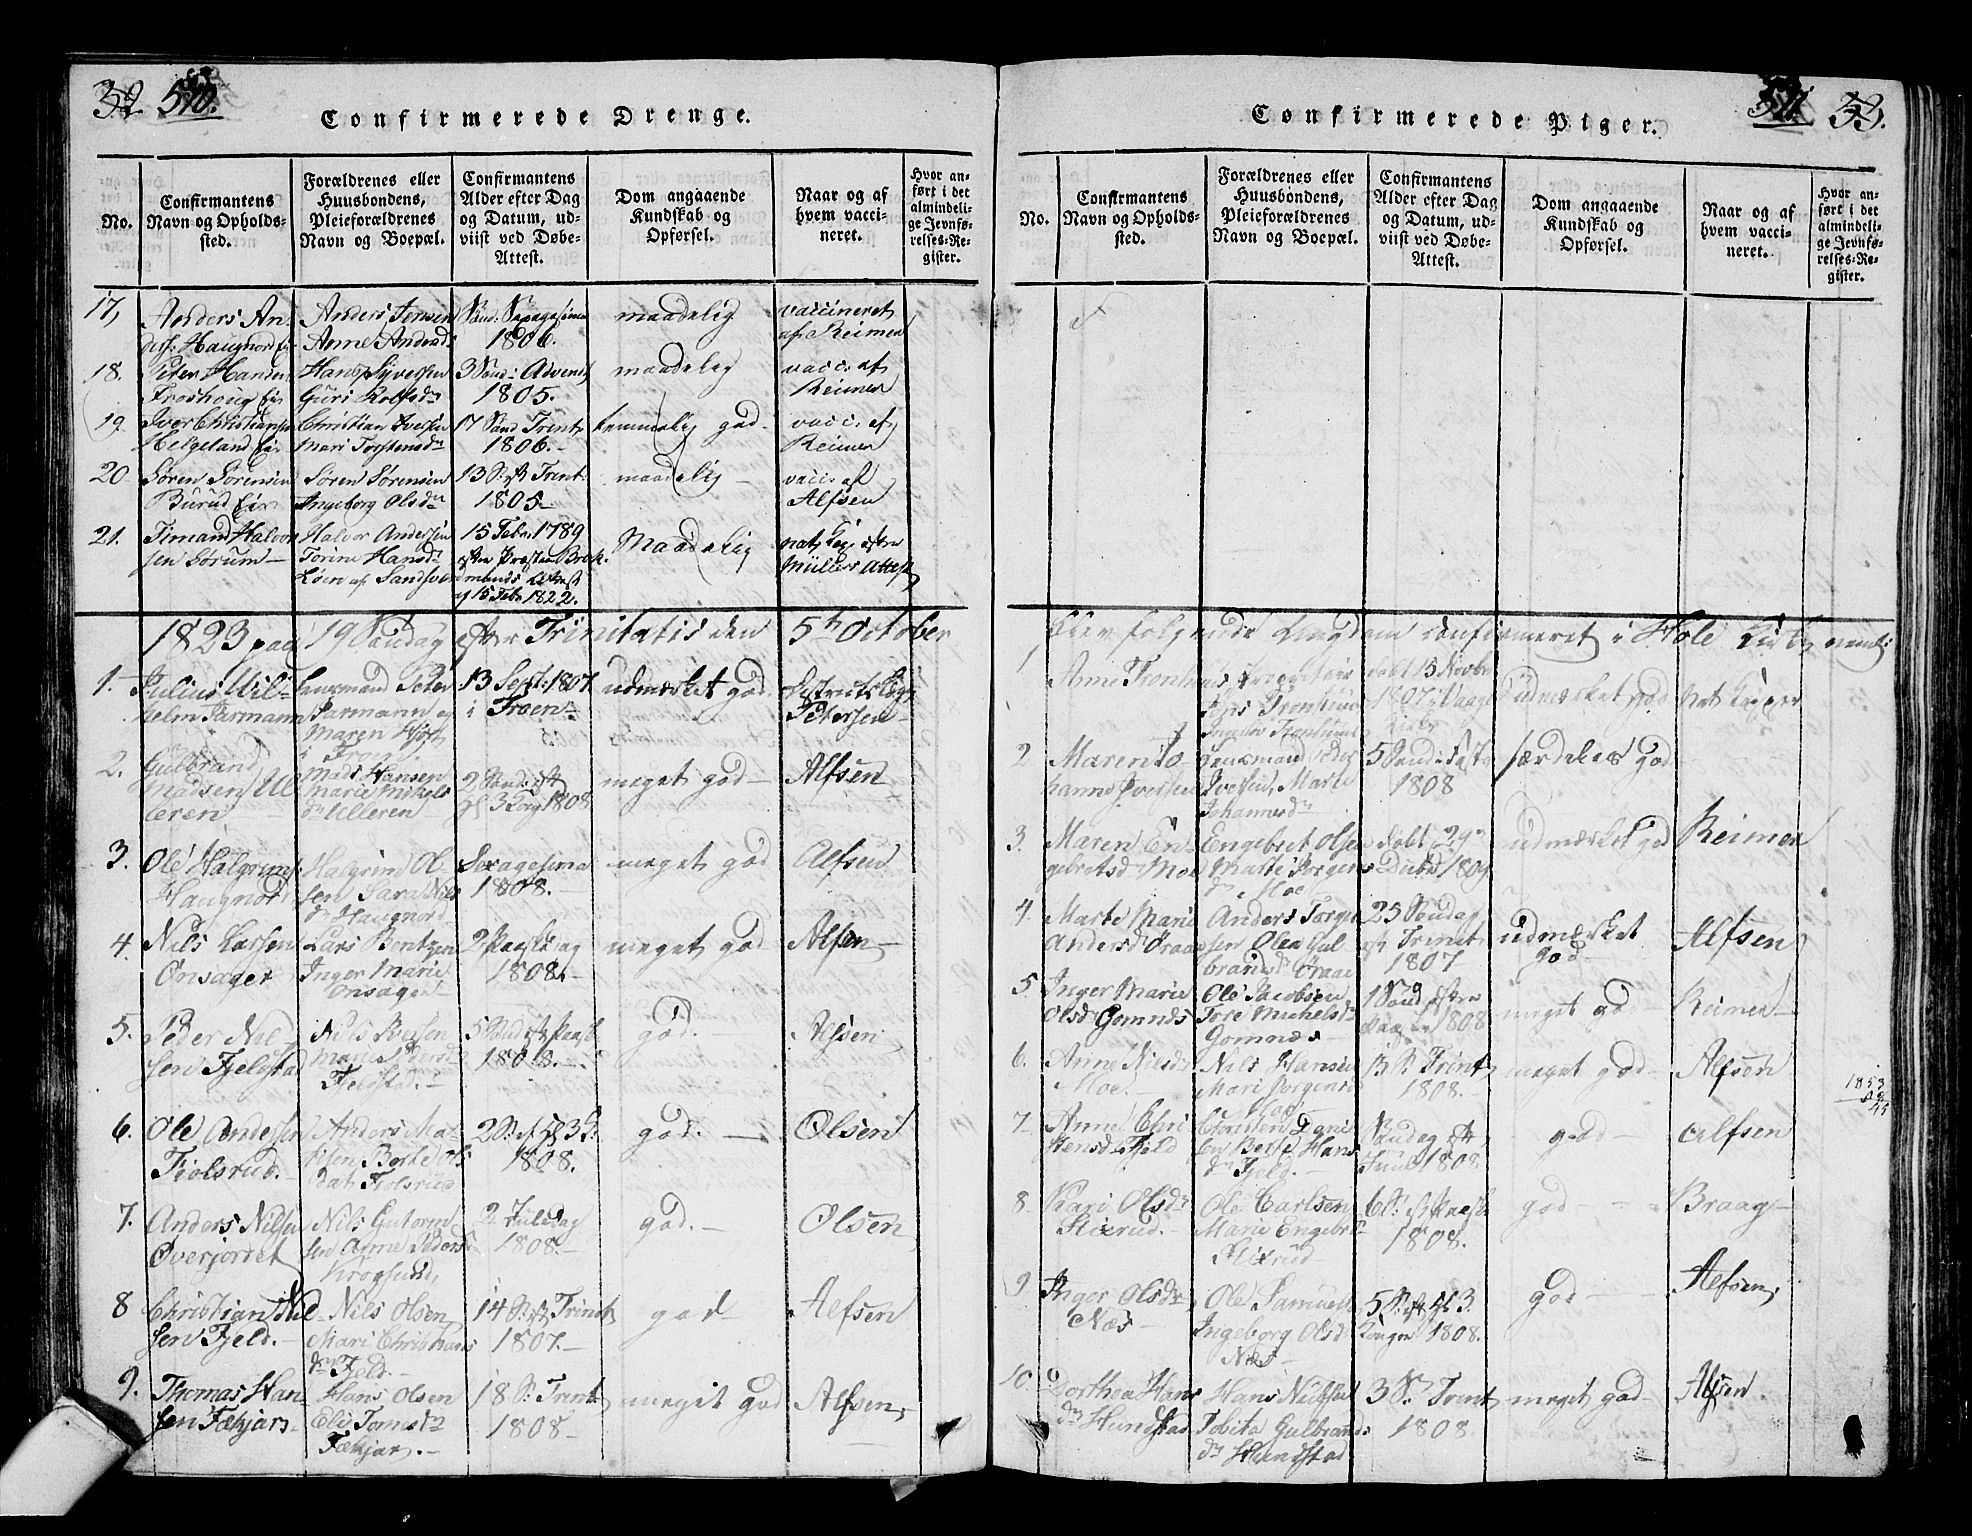 32 510.
Confirmerede Drenge.
No.
Confirmantens
Navn og Opholds-
sted.
Forældrenes eller
Huusbondens,
Pleieforældrenes
Navn og Boepæl.
Confirmantens
Alder efter Dag
og Datum, ud-
viist ved Døbe-
Attest.
Dom angaaende
Kundskab og
Opførsel.
Naar og af
hvem vacci-
neret.
Hvor an-
ført i det
almindeli-
ge Jevnfø-
relses-Re-
gister.
17,
Anders An
Haugnord Ei
Anders Jensen
Anne Andersd:
Sexagesima
1806.
maadelig
vaccineret
af Reimer
18.
Peter Hansen
Froshoug Ei
Hans Syversen
Guri Rolfsdr
3 Sønd: Advent
1805.
maadelig
vacc: af
Reimer
19
Iver Christiansen
Helgeland Ei
Christian Iversen
Mari Torstensdr
17 Sønd Trint
1806.-
temmelig god
vacc: af
Reimer
20
Søren Sørensen
Burud Eie
Søren Sørensen
Ingeborg Olsdr
13 S: eft Trint
1805-
maadelig -
vacc: af
Alfsen
21.
Simand Halvor
sen Sørum -
Halvor Andersen
Torine Hansdr
Løen af Sandsver
15 Febr. 1789
efter Præsten Brok
munds Attest
af 15 Febr 1822.
Maadelig
nat. Kop: efter
Müllers Attest
1823 paa 19 Søndag efter Trinitatis den 5te October
1.
Julius Wil-
helm Parmann
Lensmand Peter
Parmann og
Maren
13 Sept: 1807
i Troen
udmærket god.
Districts Læge
Petersen -
2.
Gulbrand
Madsen Ul
leren -
Mads Hansen
Marie Mikels
dr Ulleren
2 Sønd: eft
hl 3 Kong 1808
meget god -
Alfsen
3.
Ole Halgrims
Haugnord
Halgrim Ol-
sen Sara Nils
dr Haugnord
Sexagesima
1808.-
meget god
Alfsen
4.
Nils Larsen
Onsager
Lars Bentzen
Inger Marie
Onsager
2 Paaskedag
1808.-
meget god
Alfsen -
5.
Peder Nil-
sen Fjelstad
Nils Iversen
Marie Peders
Fjelstad.-
5 Sønd eft Paask
1808.-
god.
Alfsen
6.
Ole Andersen
Fiolsrud.
Anders Ma-
sen Berte Ols
dat Fiolsrud
2 S: ef hl 3 K:
1808.
god. -
Olsen
7.
Anders Nilsen
Øverjordet
Nils Gutorm
sen Anne Peders
Krogsund,
2 Juledag
1808.-
god.-
Olsen
8
Christian Nil
sen Fjeld.-
Nils Olsen
Mari Christians
dr Fjeld.-
14 S: eft Trint
1807.-
god -
Alfsen
9.
Thomas Han
sen Fækjar -
Hans Olsen
Eli Tomasdr
Fækjar.-
18 S: Trint
1808 -
meget god
Alfsen,
511 33.
Confirmerede Piger.
No.
Confirmantens
Navn og Opholds-
sted.
Forældrenes eller
Huusbondens,
Pleieforældrenes
Navn og Boepæl.
Confirmantens
Alder efter Dag
og Datum, ud-
viist ved Døbe-
Attest.
Dom angaaende
Kundskab og
Opførsel.
Naar og af
hvem vacci-
neret.
Hvor an-
ført i det
almindeli-
ge Jevnfø-
relses-Re-
gister.
blev følgende Ungdom confirmeret i Hole Kirke neml:
1
Anne Tronhus
født 15 Novbr
1807 i Vaage
Kirke
udmærket god
nat Kopper
2
Maren Jo
hanne Iversen
Lensmand Peder
Iversen, Maria
Johannesdr
5 Sønd: i Faste
1808
særdeles god
3.
Maren En
gebretsd Moe
Engebret Olsen
Marte Jørgens
dr Moe
født 29de
Decbr 1809
udmærket god
Reimer
4
Marte Marie
Andersd Øraa
Anders Torger
sen Olea Gul
brandsdr Øraa
25 Søndag
eft Trinit
1807
udmærket
god -
Alfsen
5
Inger Marie
Olsd Gomnæs
Ole Jacobsen
Tore Michelsdr
Gomnæs
1 Sønd efter
Paaske 1808
meget god -
Reimer -
6.
Anne Nilsdr
Moe.-
Nils Hansen
Mari Jørgens
Moe
13 S: Trint
1808.-
meget god -
Alfsen
1853
7-
Anne Chri
stensd Fjeld
Christen Dani
sen Berte Hans
dr Fjeld.-
Søndag eft
Juul 1808
god -
Alfsen
8
Kari Olsdr
Stixrud.-
Ole Carlsen
Marie Engebr
Stixrud
6 S. ef Paask
1808.
god -
Braag-
9
Inger Olsdr
Næs -
Ole Samuels
Ingeborg Olsd
Næs -
5 S: eft hl 3
Konger 1808.
god -
Alfsen,
10
Dorthea Hans
dr Hundstad
Hans Nielsen
Tobita Gulbrands
dr Hundstad
3 S. Trint
1808.
meget god -
Alfsen